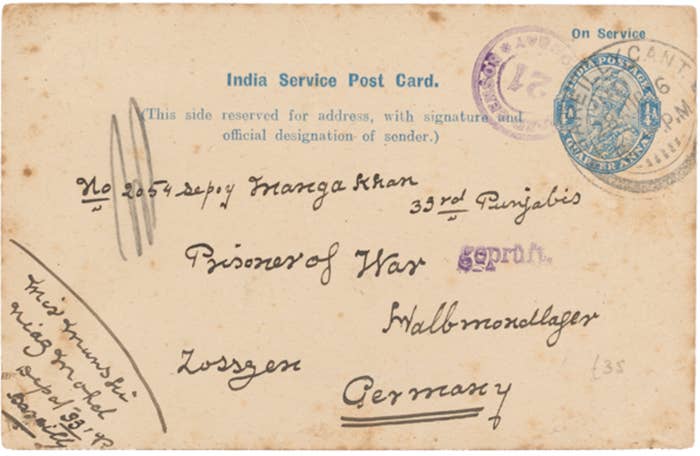 On Service
India Service Post Card.
(This side reserved for address, with signature and
official designation of sender.)
INDIA POSTAGE
QUARTER ANNA
BAREILLY CANT.
6
P.M
21
No 2054 Sepoy Manga Khan
33rd Punjabis
Prisoner of War
geprüft.
Halbmondlager
Zosszen
Germany
£35
Munshi
Niaz Mohd
Depot 33rd
Bareilly